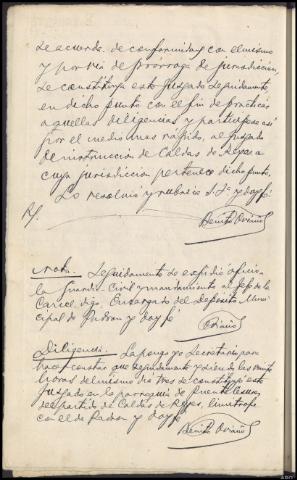 de acuerdo, de conformidad con el mismo
y por vía de prórroga de jurisdicción,
se constituya este Juzgado seguidamente
en dicho punto con el fin de practicar
aquellas diligencias y participese así
por el medio mas rápido, al Juzgado
de instruccion de Caldas de Reyes a
cuya jurisdiccion pertenece dicho punto.
Lo resolvió y rubrica S.Sª y doy fé
Benito
Nota. Seguidamente se expidió oficio
la Guardia Civil y mandamiento al Jefe de la
Carcel, digo, Encargado del deposito Muni
cipal de Padron y doy fé
Diligencia. La pongo yo Secretario para
hacer constar que seguidamente y siendo las veinte
horas del mismo dia tres se constituyó este
Juzgado en la parroquia de Puente Cesures,
del partido de Caldas de Reyes, limitrofe
con el de Padron y doy fé
Benito